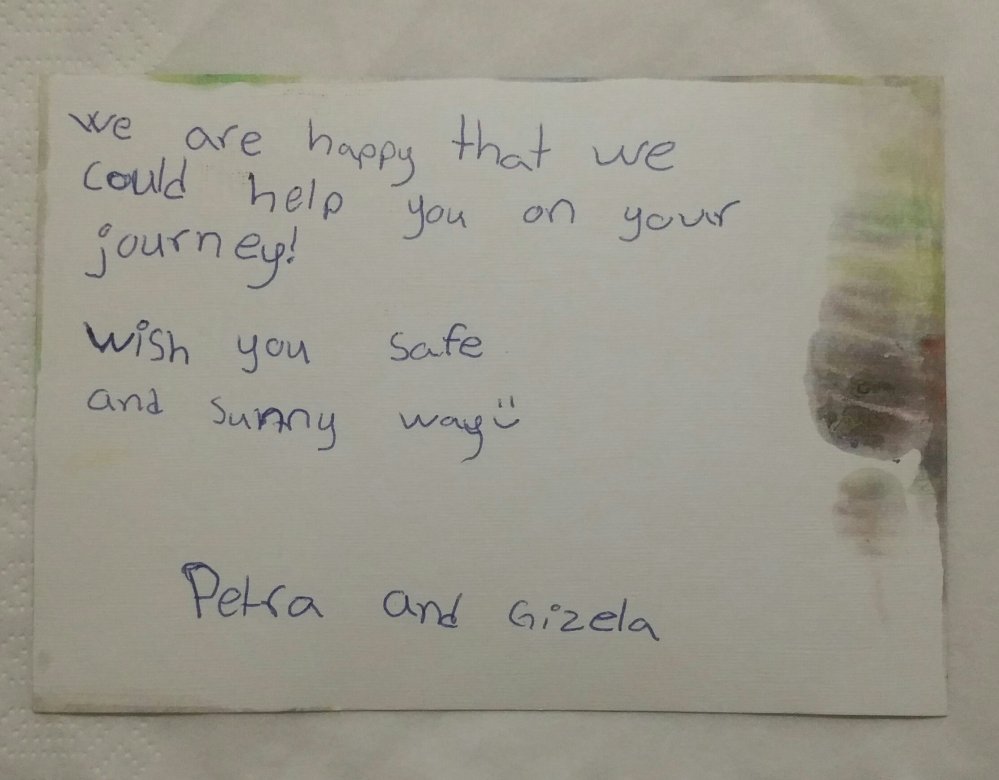 we are happy that we
could help you on your
journey!
Wish you safe
and sunny way
Petra and Gizela